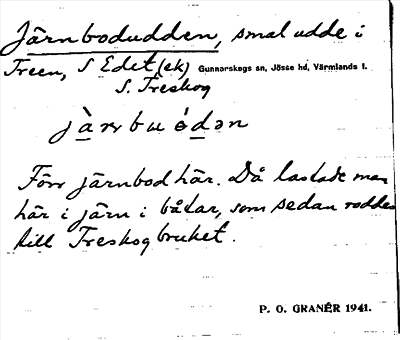 Järnbodudden, smal udde i
Treen, S Edet (ek) Gunnarskogs sn, Jösse hd, Värmlands l.
S. Treskog
jàrbuódən
Förr järnbod här. Då lastade man
här i järn i båtar, som sedan roddes
till Treskog bruket.
P. O. GRANÉR 1941.